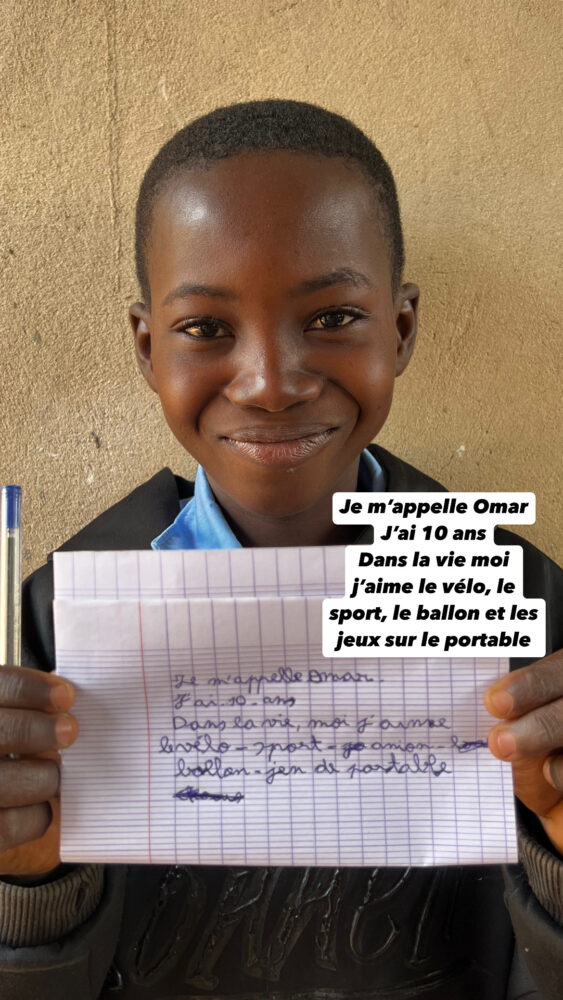 Je m'appelle Omar
J'ai 10 ans
Dans la vie moi
j'aime le vélo, le
sport, le ballon et les
jeux sur le portable
Je m'appelle Omar.
J'ai 10 ans
Dans la vie, moi j'aime
le vélo - sport -
ballon - jeu de portable